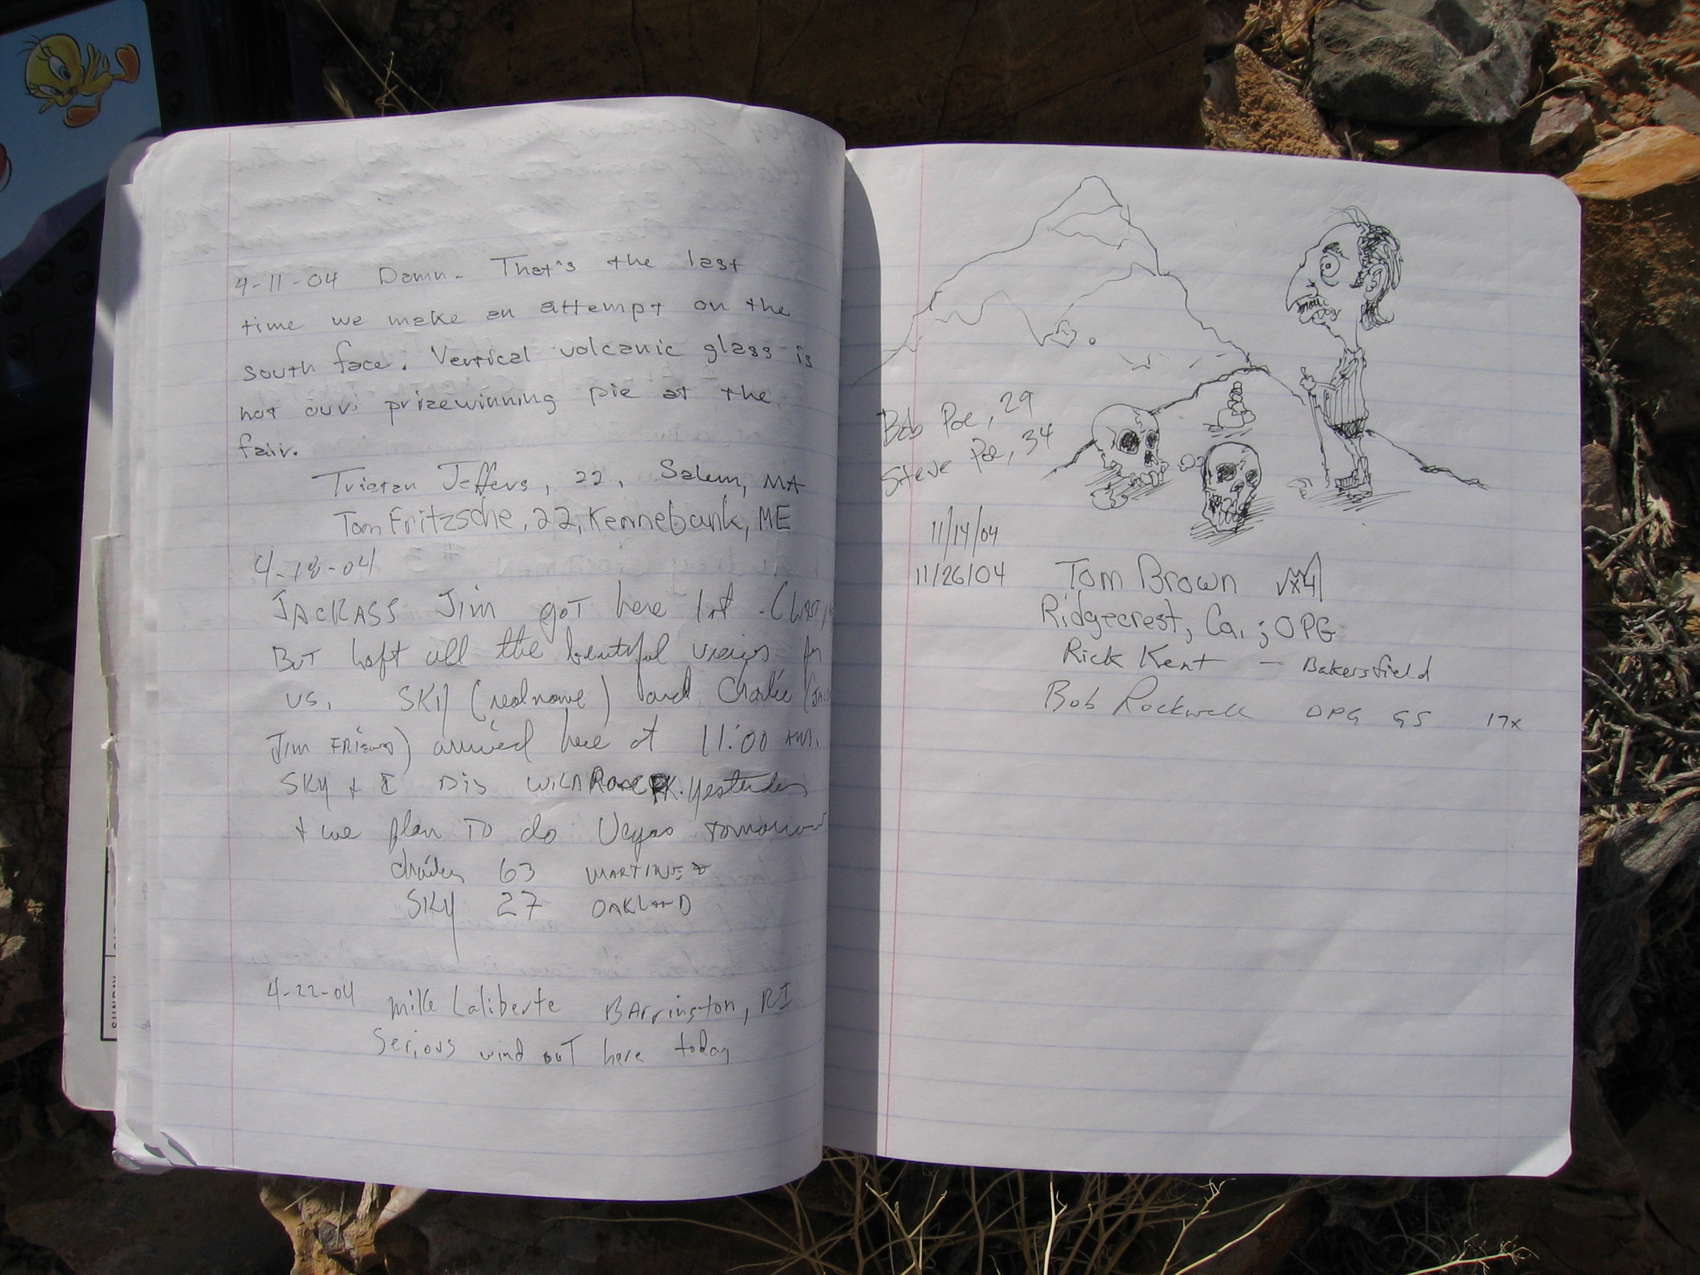 4-11-04 Damn. That's the last
time we make an attempt on the
south face. Vertical volcanic glass is
not our prizewinning pie at the
fair.
Tristan Jeffers, 22, Salem, MA
Tom Fritzsche, 22, Kennebunk, ME
4-18-04
JACKASS Jim got here 1st
But left all the beautiful views for
us. SKY (real name) and Charlie
Jim FRIEND) arrived here at 11:00 AM.
SKY + I Did yesterday
+ we plan TO do Vegas tomorrow
Charles 63 MARTINEZ
SKY 27 OAKLAND
4-22-04 Mike Laliberte BArrington, RI
Serious wind ouT here today
Bob Poe, 29
Steve Poe, 34
11/14/04
11/26/04 Tom Brown x4
Ridgecrest, Ca.; OPG
Rick Kent – Bakersfield
Bob Rockwell OPG GS 17x